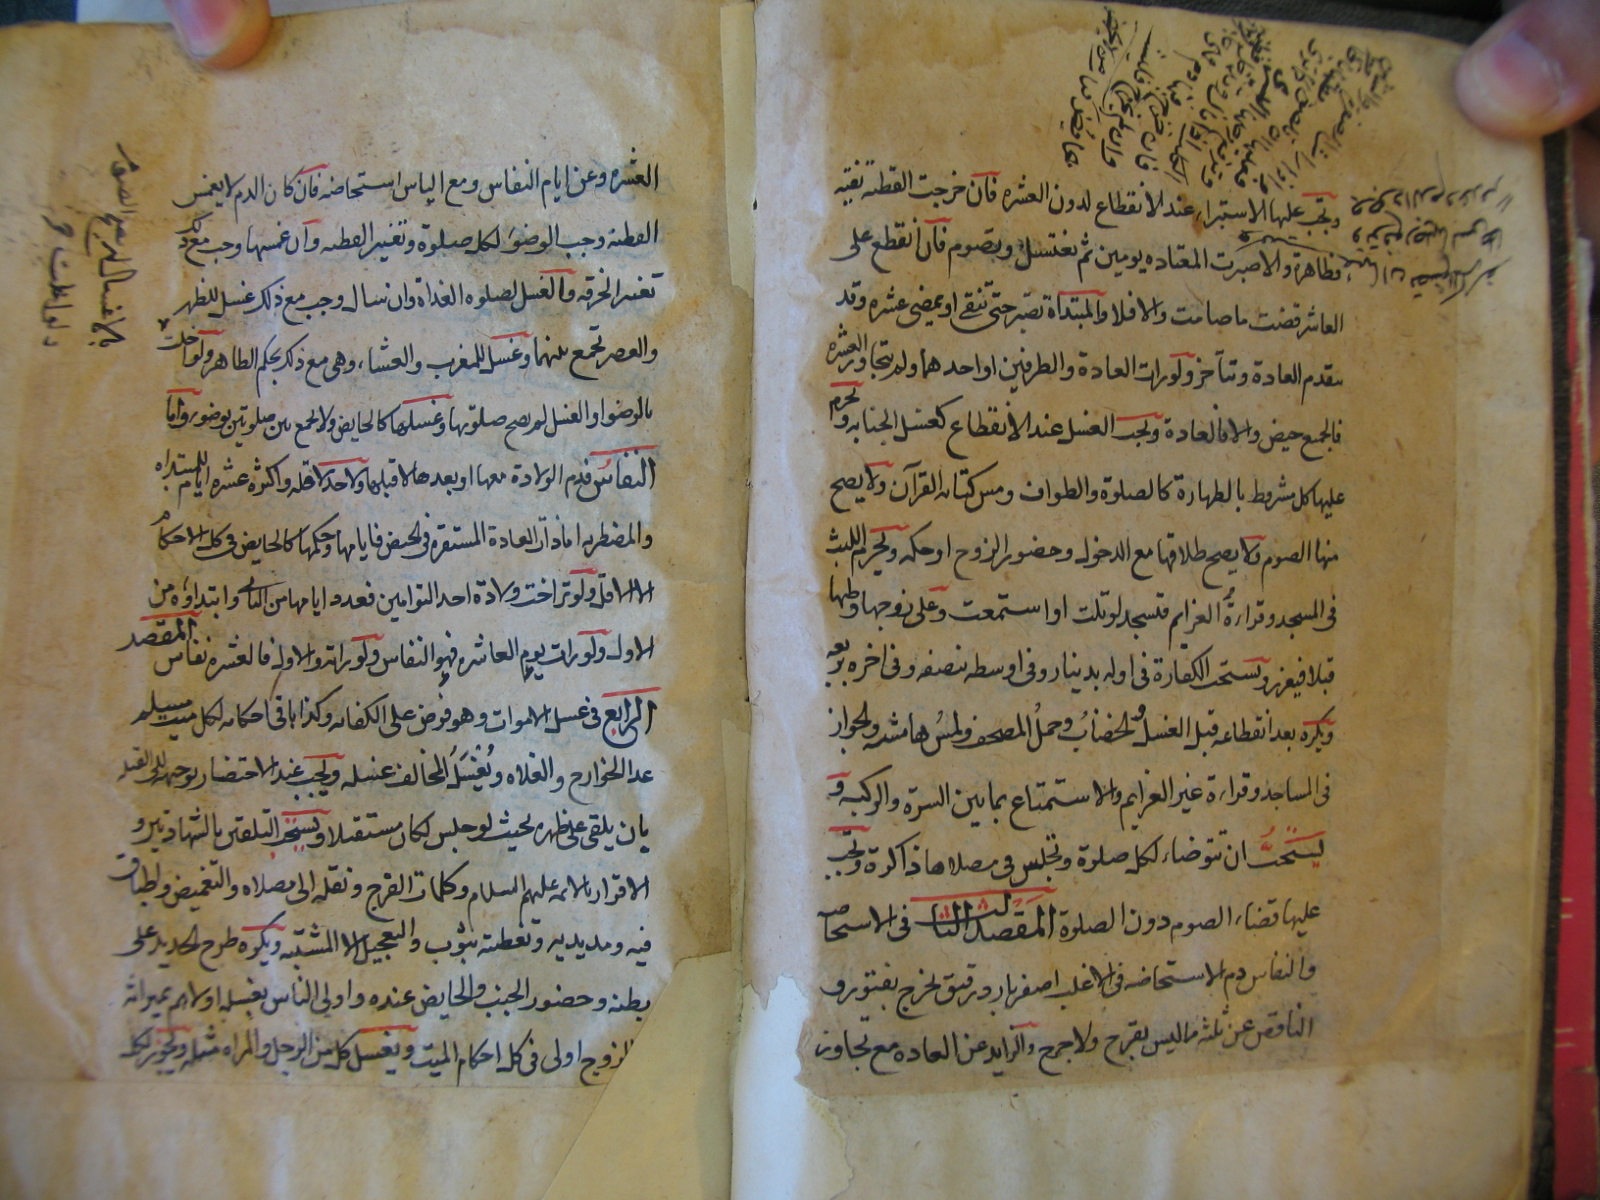 ويجب عليها الاستبراء عند الانقطاع لدون العشرة فان خرجت القطنة نقية
فطاهرة والا صبرت المعتادة يومين ثم تغتسل وتصوم فان انقطع على
العاشر قضت ما صامت والا فلا والمبتدأة تصبر حتى تنقى او يمضي عشرة وقد
يتقدم العادة وتتأخر ولو رات العادة والطرفين او احدهما ولم يتجاوز العشرة
فالجميع حيض والا فالعادة ويجب الغسل عند الانقطاع كغسل الجنابة ويحرم
عليها كل مشروط بالطهارة كالصلوة والطواف ومس كتابة القرآن ولا يصح
منها الصوم ولا يصح طلاقها مع الدخول وحضور الزوج او حكمه ويحرم اللبث
في المسجد وقراءة العزايم فتسجد لو تلت او استمعت وعلى زوجها وطيها
قبلا فيعزر ويستحب الكفارة في اوله بدينار وفي اوسطه بنصفه وفي اخره بربعه
ويكره بعد انقطاعه قبل الغسل والخضاب وحمل المصحف ولمس هامشه والجواز
في المساجد وقراءة غير العزايم والاستمتاع بما بين السرة والركبة و
يستحب ان تتوضاء لكل صلوة وتجلس في مصلاها ذاكرة ويجب
عليها قضاء الصوم دون الصلوة المقصد الثالث في الاستحاضه
والنفاس دم الاستحاضه في الاغلب اصفر بارد رقيق يخرج بفتور و
الناقص عن ثلثه مما ليس بقرح ولا جرح والزايد عن العاده مع تجاوز
العشره وعن ايام النفاس ومع الياس استحاضه فان كان الدم لا يغمس
القطنه وجب الوضوء لكل صلوة وتغيير القطنه وان غمسها وجب مع ذلك
تغيير الخرقه والغسل لصلوه الغداة وان سال وجب مع ذلك غسل للظهر
والعصر تجمع بينهما وغسل للمغرب والعشاء وهي مع ذلك بحكم الطاهر ولو اخلت
بالوضوء او الغسل لم يصح صلوتها وغسلها كالحايض ولا تجمع بين صلوتين بوضوء واما
النفاس فدم الولادة معها او بعدها لا قبلها ولا حد لاقله واكثره عشره ايام للمبتداه
والمضطربه اما ذات العادة المستقره في الحيض فايامها وحكمها كالحايض في كل الاحكام
الا الاقل ولو تراخت ولادة احد التوامين فعدد ايامها من الثاني وابتداؤه من
الاول ولو رات يوم العاشر فهو النفاس ولو راته والاول فالعشره نفاس المقصد
الرابع في غسل الاموات وهو فرض على الكفايه وكذا باقي احكامه لكل ميت مسلم
عدا الخوارج والغلاه ويغسل المخالف غسله ويجب عند الاحتضار توجيهه الى القبله
بان يلقى على ظهره بحيث لو جلس لكان مستقبلا ويستحب التلقين بالشهادتين و
الاقرار بالائمه عليهم السلام وكلمات الفرج ونقله الى مصلاه والتغميض واطباق
فيه ومد يديه وتغطيته بثوب والتعجيل الا المشتبه ويكره طرح الحديد على
بطنه وحضور الجنب والحايض عنده واولى الناس بغسله اولاهم بميراثه
الزوج اولى في كل احكام الميت ويغسل كل من الرجل والمراه مثله ويجوز لكل